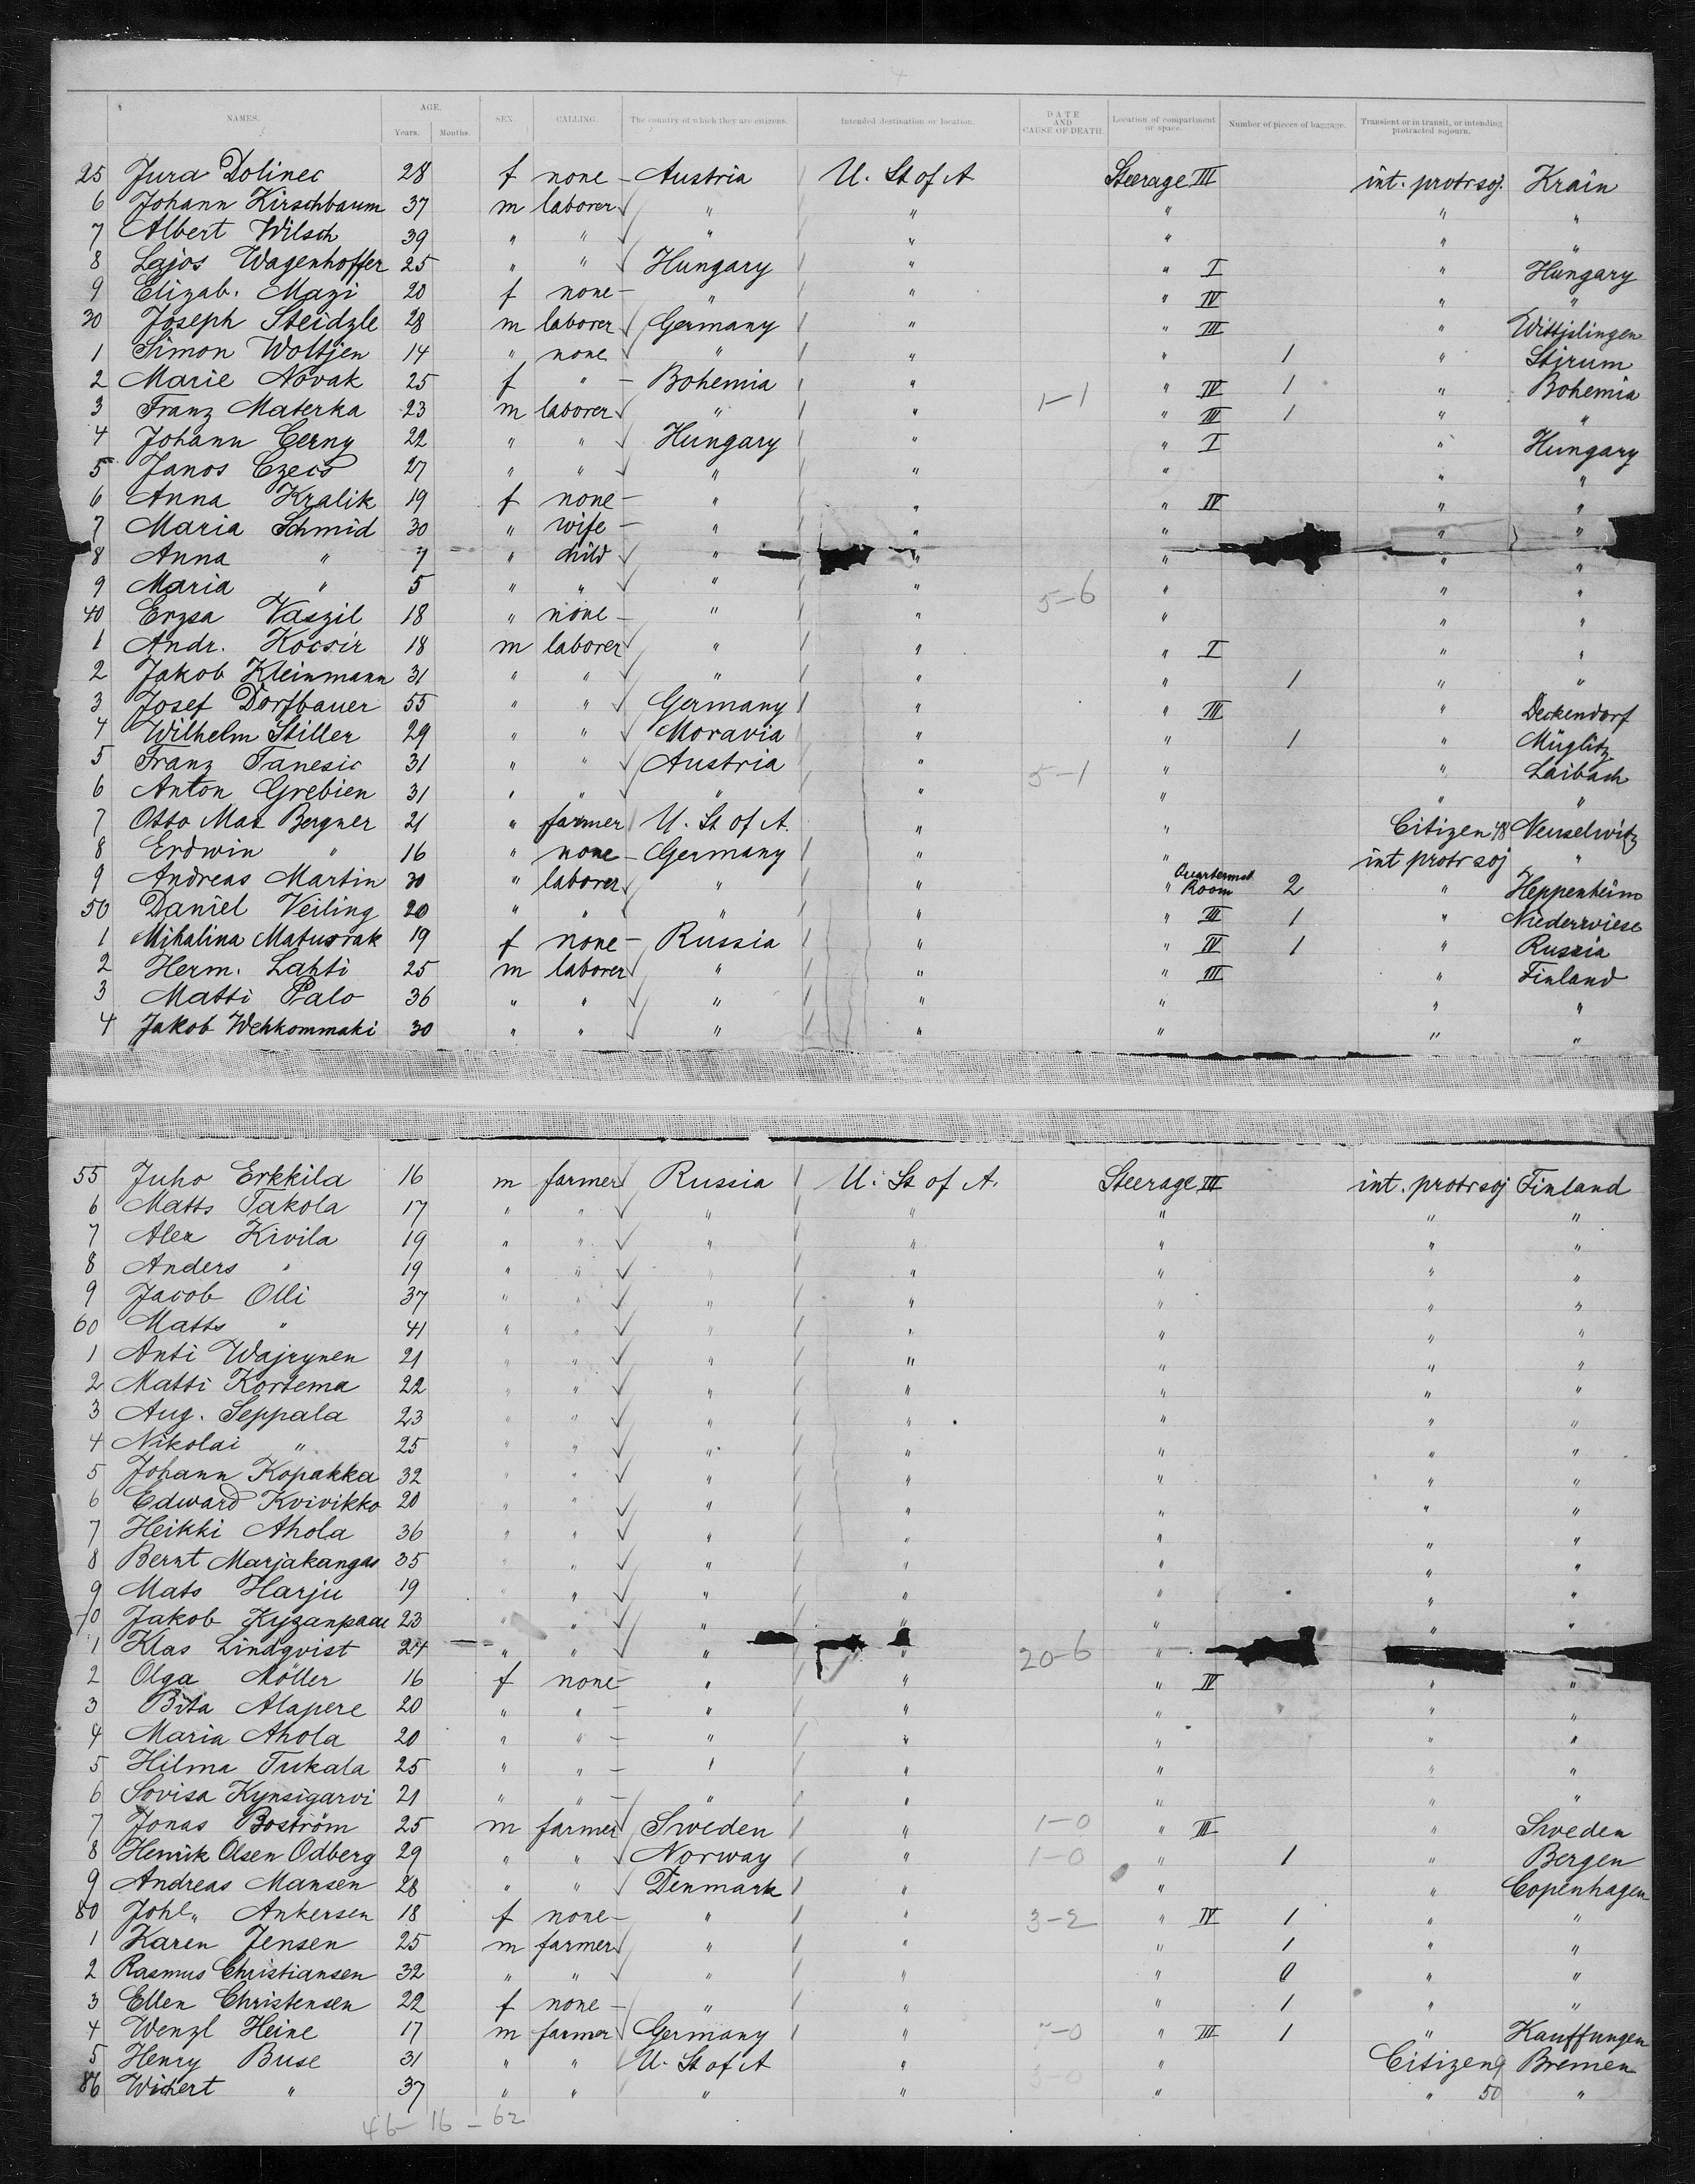 4
NAMES. AGE. Years. Months. SEX. CALLING. The country of which they are citizens. Intended destination or location. DATE AND CAUSE OF DEATH. Location of compartment or space. Number of pieces of baggage. Transient or in transit, or intending protracted sojourn.
25 Jura Dolinec 28 f none - Austria U. St of A Steerage III int. protr soj. Krain
6 Johann Kirschbaum 37 m laborer " " " " "
7 Albert Wilsch 39 " " " " " " "
8 Lajos Wagenhoffer 25 " " Hungary " " I " Hungary
9 Elizab. Mazi 20 f none - " " " IV " "
30 Joseph Steidzle 28 m laborer Germany " " III " Wittjslingen
1 Simon Woltjen 14 " none " " " 1 " Stirum
2 Marie Novak 25 f " - Bohemia " " IV 1 " Bohemia
3 Franz Materka 23 m laborer " " 1-1 " III 1 " "
4 Johann Cerny 22 " " Hungary " " I " Hungary
5 Janos Czecs 27 " " " " " " "
6 Anna Kralik 19 f none - " " " IV " "
7 Maria Schmid 30 " wife - " " " " "
8 Anna " 7 " child " " " " "
9 Maria " 5 " " " " 5-6 " " "
40 Erzsa Vaszil 18 " none - " " " " "
1 Andr. Kocsir 18 m laborer " " " I " "
2 Jakob Kleinmann 31 " " " " " 1 " "
3 Josef Dorfbauer 55 " " Germany " " III " Deckendorf
4 Wilhelm Stiller 29 " " Moravia " " 1 " Müglitz
5 Franz Tanesic 31 " " Austria " 5-1 " " Laibach
6 Anton Grebien 31 " " " " " " "
7 Otto Max Bergner 21 " farmer U. St of A. " " Citizen 48 Neuselwitz
8 Erdwin " 16 " none - Germany " " int protr soj "
9 Andreas Martin 30 " laborer " " " Room 2 " Heppenheim
50 Daniel Veiling 20 " " " " " III 1 " Niederwiese
1 Mihalina Matusrak 19 f none - Russia " " IV 1 " Russia
2 Herm. Lahti 25 m laborer " " " III " Finland
3 Matti Palo 36 " " " " " " "
4 Jakob Wehkommaki 30 " " " " " " "
55 Juho Erkkila 16 m farmer Russia U. St of A. Steerage III int. protr soj Finland
6 Matts Takola 17 " " " " " " "
7 Alex Kivila 19 " " " " " " "
8 Anders " 19 " " " " " " "
9 Jacob Olli 37 " " " " " " "
60 Matts " 41 " " " " " " "
1 Anti Wajrynen 21 " " " " " " "
2 Matti Kortema 22 " " " " " " "
3 Aug. Seppala 23 " " " " " " "
4 Nikolai " 25 " " " " " " "
5 Johann Kopakka 32 " " " " " " "
6 Edward Kvivikko 20 " " " " " " "
7 Heikki Ahola 36 " " " " " " "
8 Bernt Marjakangas 35 " " " " " " "
9 Mats Harju 19 " " " " " " "
70 Jakob Kyzanpaae 23 " " " " " " "
1 Klas Lindqvist 24 " " " " 20-6 "
2 Olga Möller 16 f none - " " " IV " "
3 Bita Alapere 20 " " - " " " " "
4 Maria Ahola 20 " " - " " " " "
5 Hilma Tukala 25 " " - " " " " "
6 Sovisa Kynsigarvi 21 " " - " " " " "
7 Jonas Boström 25 m farmer Sweden " 1-0 " III " Sweden
8 Henrik Olsen Odberg 29 " " Norway " 1-0 " 1 " Bergen
9 Andreas Mansen 28 " " Denmark " " " Copenhagen
80 Johe " Ankersen 18 f none - " " 3-2 " IV 1 " "
1 Karen Jensen 25 m farmer " " " 1 " "
2 Rasmus Christiansen 32 " " " " " 0 " "
3 Ellen Christensen 22 f none - " " " 1 " "
4 Wenzl Heine 17 m farmer Germany " " III 1 " Kauffungen
5 Henry Buse 31 " " U. St of A " " Citizen 9 Bremen
86 Wichert " 37 " " " " 3-0 " " 50 "
46-16-62